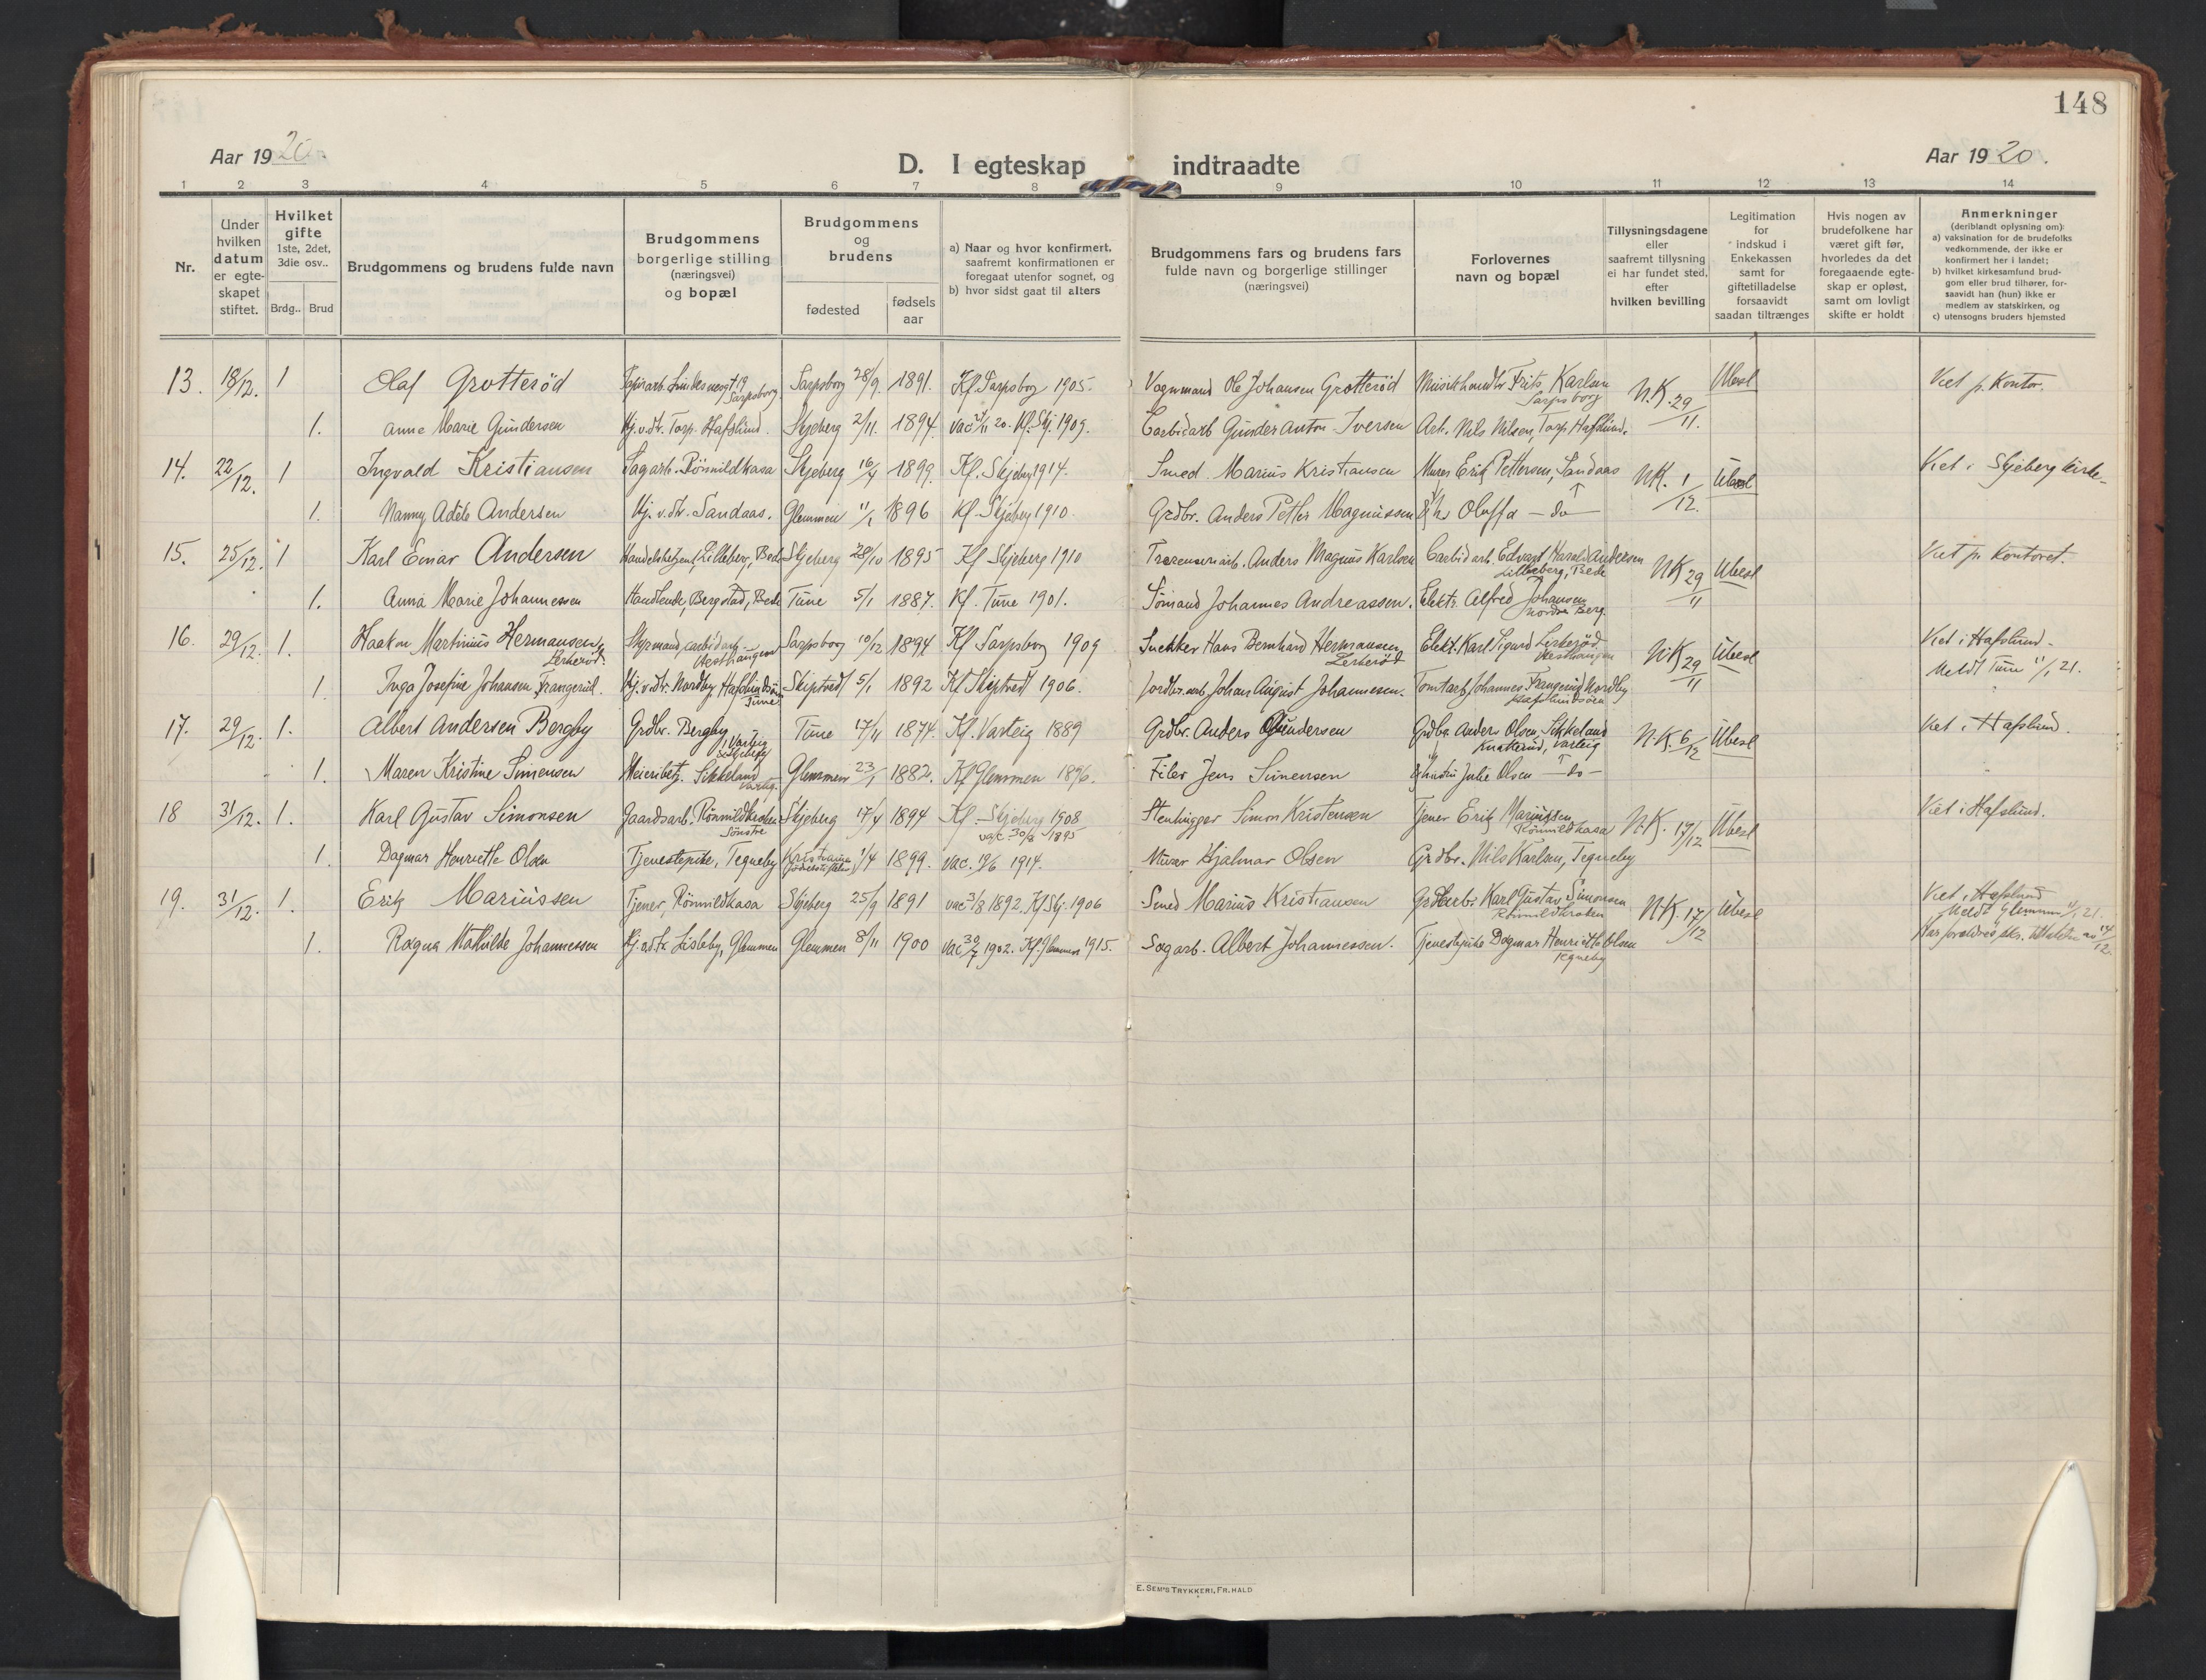 148
Aar 1920.
D. I egteskap indtraadte
Aar 1920.
1 2 3 4 5 6 7 8 9 10 11 12 13 14
Nr.
Under hvilken datum er egte-skapet stiftet.
Hvilket gifte 1ste, 2det, 3die osv..
Brdg.. Brud
Brudgommens og brudens fulde navn
Brudgommens borgerlige stilling (næringsvei) og bopæl
Brudgommens og brudens
fødested
fødsels aar
a) Naar og hvor konfirmert, saafremt konfirmationen er foregaat utenfor sognet, og
b) hvor sidst gaat til alters
Brudgommens fars og brudens fars fulde navn og borgerlige stillinger (næringsvei)
Forlovernes navn og bopæl
Tillysningsdagene eller saafremt tillysning ei har fundet sted, efter hvilken bevilling
Legitimation for indskud i Enkekassen samt for giftetilladelse forsaavidt saadan tiltrænges
Hvis nogen av brudefolkene har været gift før, hvorledes da det foregaaende egte-skap er opløst, samt om lovligt skifte er holdt
Anmerkninger (deriblandt oplysning om):
a) vaksination for de brudefolks vedkommende, der ikke er konfirmert her i landet;
b) hvilket kirkesamfund brud-gom eller brud tilhører, for-saavidt han (hun) ikke er medlem av statskirken, og
c) utensogns bruders hjemsted
13. 18/12. 1 Olaf Grotterød Papirarb. Lindesnesgt 19 Sarpsborg Sarpsborg 28/9. 1891. Kf. Sarpsborg 1905. Vognmand Ole Johansen Grotterød Musikhandler Frits Karlsen Sarpsborg N.K. 29/11. Ubesl Viet p. Kontor.
1. Anne Marie Gundersen Hj. v. dr. Torp. Hafslund. Skjeberg 2/11. 1894. vac 20. Kf. Skj. 1909. Carbidarb Gunder Anton Iversen Arb. Nils Nilsen, Torp Hafslund.
14. 22/12. 1 Ingvald Kristiansen Sagarb. Rönnildkasa Skjeberg 16/4 1899. Kf. Skjeberg 1914. Smed Marius Kristiansen Murer Erik Pettersen, Sandaas N.K. 1/12. Ubesl Viet i Skjeberg kirke.
1. Nanny Adéle Andersen Hj. v. dr. Sandaas. Glemmen 11/1 1896 Kf. Skjeberg 1910. Grdbr. Anders Petter Magnussen Oluffa — do —
15. 25/12. 1 Karl Einar Andersen Handelsbetjent, Lilleberg, Bede Skjeberg 28/10 1895 Kf. Skjeberg 1910 Anders Magnus Karlsen Carbidarb. Edvart Harald Andersen Lilleberg, Bede N.K. 29/11 Ubesl Viet p. Kontoret.
1. Anna Marie Johannessen Handlende, Bergstad, Bede Tune 5/1 1887. Kf. Tune 1901. Sömand Johannes Andreassen. Elektr. Alfred Johansen Nordre Berg
16. 29/12. 1. Haakon Martinius Hermansen Lerkeröd. Styrmand, carbidarb. Vesthaugen Sarpsborg 10/12 1894 Kf Sarpsborg 1909 Snekker Hans Bernhard Hermansen Lerkeröd Elekt. Karl Sigurd Lerkeröd Vesthaugen N.K. 29/11 Ubesl Viet i Hafslund.
1. Inga Josefine Johansen Frangerud. Hj. v. dr. Nordby Hafslundsöen Tune Skiptvedt 5/1 1892 Kf Skiptvedt 1906. Jordbr. arb. Johan August Johannesen. Tomtarb. Johannes Frangerud Nordby Hafslundsöen Meldt Tune 11/1 21.
17. 29/12. 1. Albert Andersen Bergby Grdbr. Bergby, i Varteig Skjeberg Tune 17/11 1874. Kf. Varteig 1889 Grdbr. Anders Gundersen Grdbr. Anders Olsen, Sikkeland Knatterud, Varteig N.K. 6/12 Ubesl Viet i Hafslund.
1. Maren Kristine Simensen Meieribetj. Sikkeland Varteig. Glemmen 23/1 1882. Kf Glemmen 1896. Filer Jens Simensen Hustru Julie Olsen — do —
18 31/12. 1. Karl Gustav Simonsen Gaardsarb. Rönnildkroken Söndre Skjeberg 17/4 1894 Kf. Skjeberg 1908 vac. 30/8 1895 Stenhugger Simon Kristensen Tjener Erik Mariussen Rönnildkasa N.K. 17/12 Ubesl Viet i Hafslund.
1. Dagmar Henriette Olsen Tjenestepike, Tegneby Kristiania 1/4 1899. vac. 19/6 1914. Murer Hjalmar Olsen Grdbr. Nils Karlsen, Tegneby
19. 31/12. 1. Erik Mariussen Tjener, Rönnildkasa Skjeberg 25/9 1891 vac 31/8 1892. Kf Skj. 1906 Smed Marius Kristiansen Grdarb. Karl Gustav Simonsen Rönnildkroken N.K. 17/12 Ubesl Viet i Hafslund Meldt Glemmen 11/1 21.
1. Ragna Mathilde Johannessen Hj. v dr. Lisleby, Glemmen Glemmen 8/11 1900 vac 30/7 1902. Kf. Glemmen 1915. Sagarb. Albert Johannessen. Tjenestepike Dagmar Henriette Olsen Tegneby Har forældres skr. av 14/12.
E. SEM'S TRYKKERI, FR. HALD